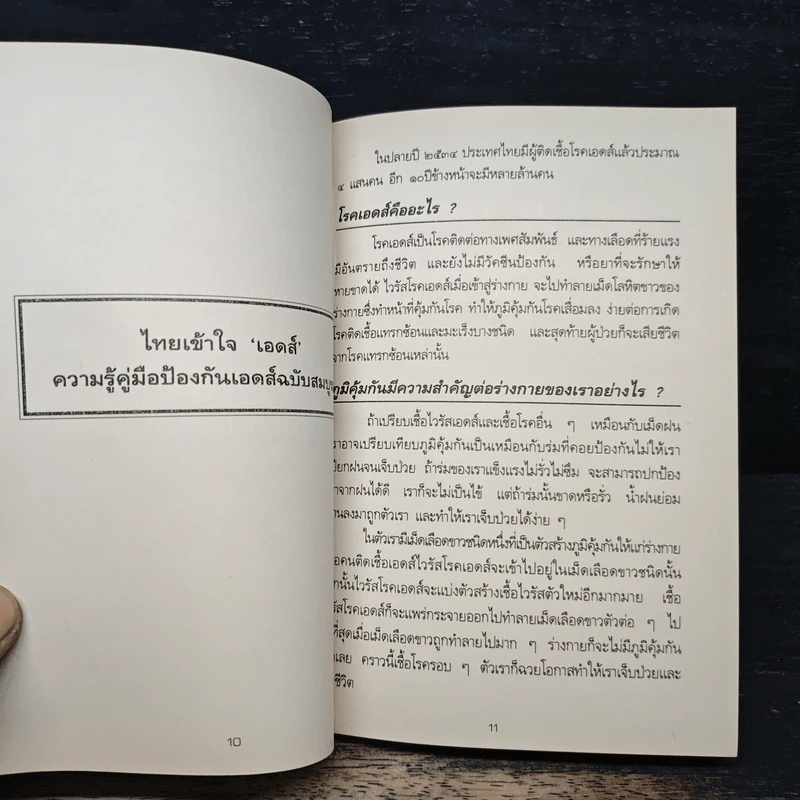 ไทยเข้าใจ 'เอดส์'
ความรู้คู่มือป้องกันเอดส์ฉบับสมบู
10
ในปลายปี ๒๕๓๔ ประเทศไทยมีผู้ติดเชื้อโรคเอดส์แล้วประมาณ
๔ แสนคน อีก ๑๐ปีข้างหน้าจะมีหลายล้านคน
โรคเอดส์คืออะไร ?
โรคเอดส์เป็นโรคติดต่อทางเพศสัมพันธ์ และทางเลือดที่ร้ายแรง
มีอันตรายถึงชีวิต และยังไม่มีวัคซีนป้องกัน หรือยาที่จะรักษาให้
หายขาดได้ ไวรัสโรคเอดส์เมื่อเข้าสู่ร่างกาย จะไปทำลายเม็ดโลหิตขาวของ
ร่างกายซึ่งทำหน้าที่คุ้มกันโรค ทำให้ภูมิคุ้มกันโรคเสื่อมลง ง่ายต่อการเกิด
โรคติดเชื้อแทรกซ้อนและมะเร็งบางชนิด และสุดท้ายผู้ป่วยก็จะเสียชีวิต
จากโรคแทรกซ้อนเหล่านั้น
ภูมิคุ้มกันมีความสำคัญต่อร่างกายของเราอย่างไร ?
ถ้าเปรียบเชื้อไวรัสเอดส์และเชื้อโรคอื่น ๆ เหมือนกับเม็ดฝน
ราอาจเปรียบเทียบภูมิคุ้มกันเป็นเหมือนกับร่มที่คอยป้องกันไม่ให้เรา
ปียกฝนจนเจ็บป่วย ถ้าร่มของเราแข็งแรงไม่รั่วไม่ซึม จะสามารถปกป้อง
าจากฝนได้ดี เราก็จะไม่เป็นไข้ แต่ถ้าร่มนั้นขาดหรือรั่ว น้ำฝนย่อม
านลงมาถูกตัวเรา และทำให้เราเจ็บป่วยได้ง่าย ๆ
ในตัวเรามีเม็ดเลือดขาวชนิดหนึ่งที่เป็นตัวสร้างภูมิคุ้มกันให้แก่ร่างกาย
อคนติดเชื้อเอดส์ไวรัสโรคเอดส์จะเข้าไปอยู่ในเม็ดเลือดขาวชนิดนั้น
กนั้นไวรัสโรคเอดส์จะแบ่งตัวสร้างเชื้อไวรัสตัวใหม่อีกมากมาย เชื้อ
รัสโรคเอดส์ก็จะแพร่กระจายออกไปทำลายเม็ดเลือดขาวตัวต่อ ๆ ไป
ที่สุดเมื่อเม็ดเลือดขาวถูกทำลายไปมาก ๆ ร่างกายก็จะไม่มีภูมิคุ้มกัน
เลย คราวนี้เชื้อโรครอบ ๆ ตัวเราก็ฉวยโอกาสทำให้เราเจ็บป่วยและ
ชีวิต
11